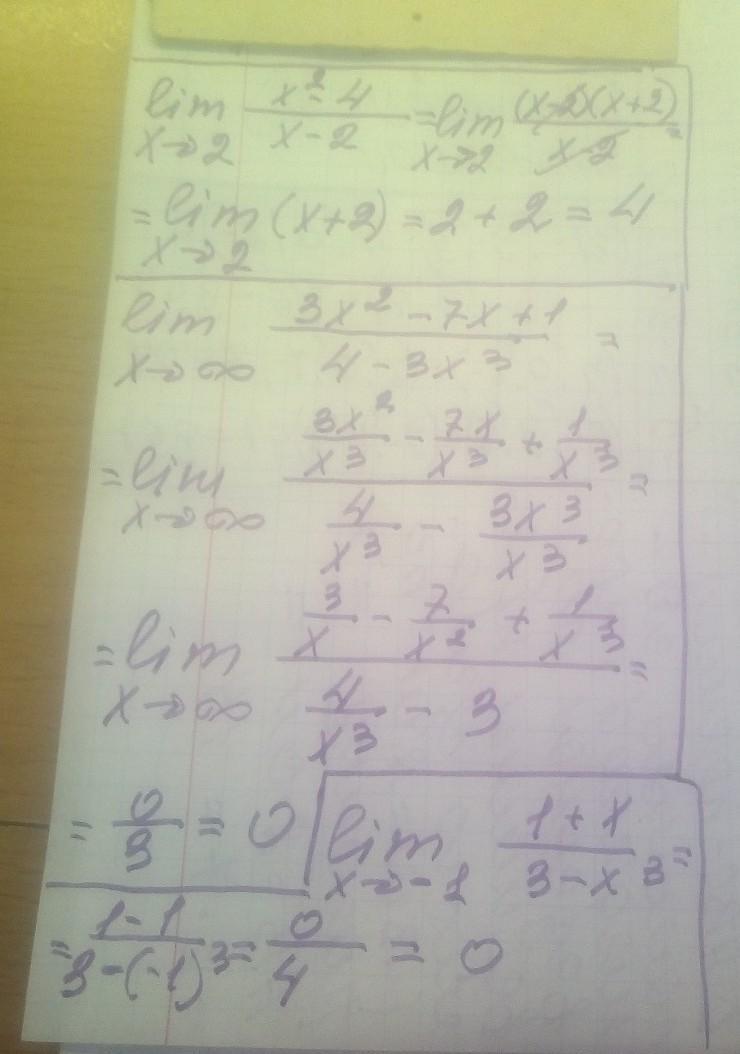 lim x→2 (x² - 4)/(x - 2) = lim x→2 ((x-2)(x+2))/(x-2) =
= lim x→2 (x+2) = 2 + 2 = 4
lim x→∞ (3x² - 7x + 1)/(4 - 3x³) =
= lim x→∞ (3x²/x³ - 7x/x³ + 1/x³)/(4/x³ - 3x³/x³) =
= lim x→∞ (3/x - 7/x² + 1/x³)/(4/x³ - 3) =
= 0/3 = 0
lim x→-1 (1 + x)/(3 - x³) =
= (1 - 1)/(3 - (-1)³) = 0/4 = 0